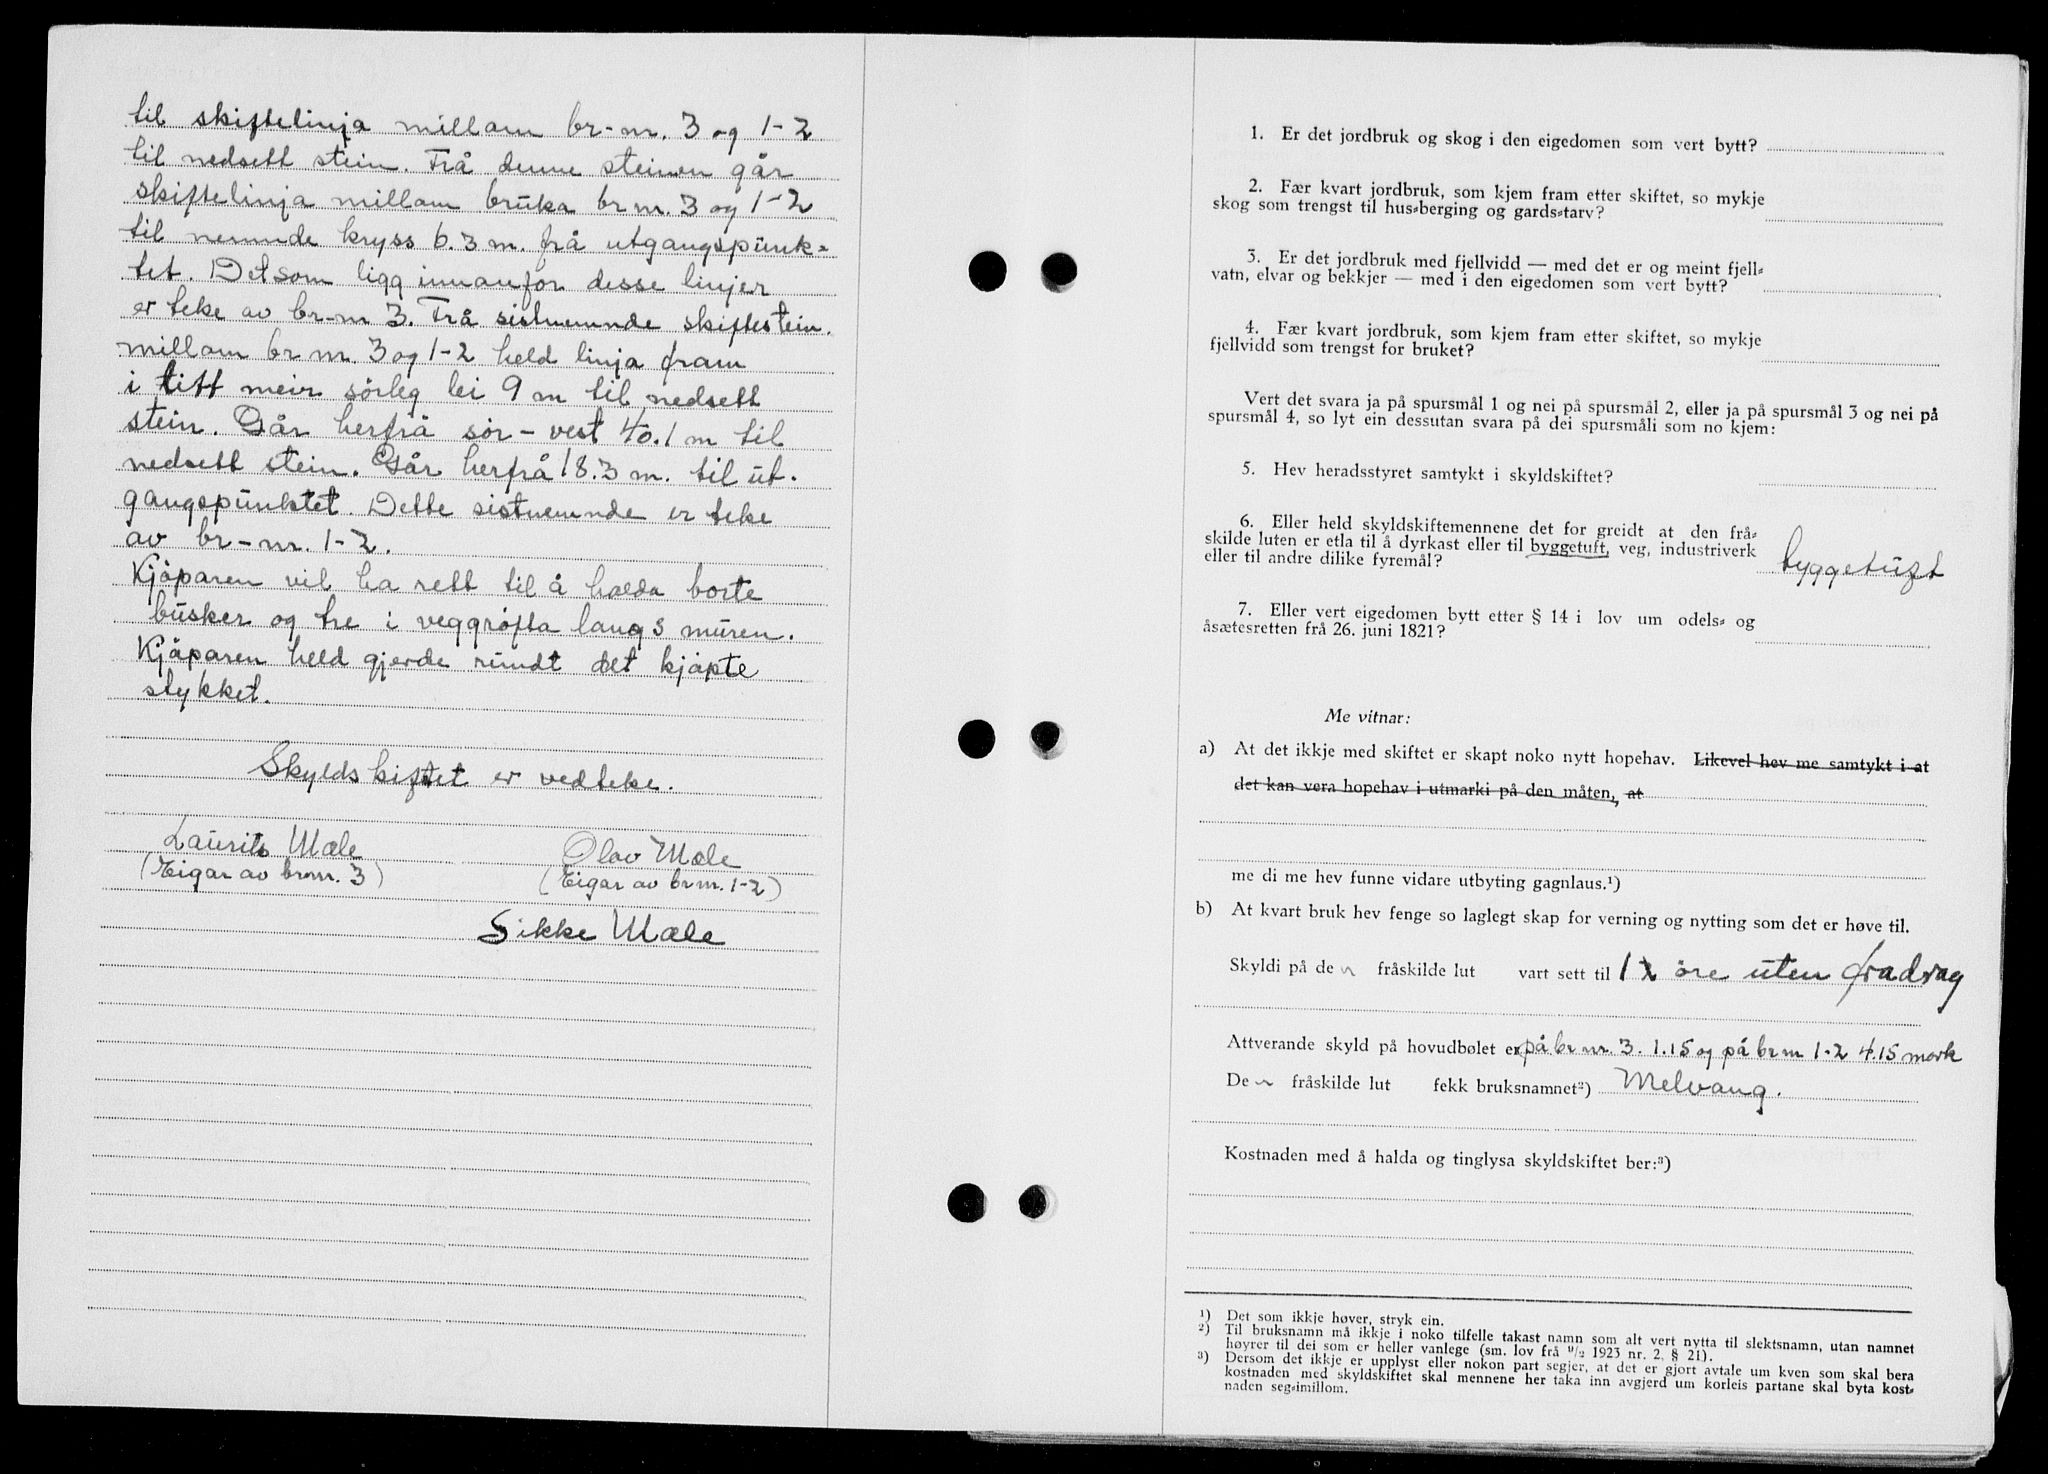 til skiftelinja millom br-nr. 3 og 1-2
til nedsett stein. Frå denne steinen går
skiftelinja millom bruka br nr. 3 og 1-2
til nemnde kryss 6.3 m. frå utgangspunk-
tet. Det som ligg innanfor desse linjer
er teke av br-nr 3. Frå sistnemnde skiftestein
millom br nr. 3 og 1-2 held linja fram
i litt meir sørleg lei 9 m til nedsett
stein. Går herfrå sør-vest 40.1 m til
nedsett stein. Går herfrå 18.3 m. til ut-
gangspunktet. Dette sistnemnde er teke
av br-nr. 1-2.
Kjøparen vil ha rett til å halda borte
busker og tre i veggrøfta langs muren.
Kjøparen held gjerde rundt det kjøpte
stykket.
Skyldskiftet er vedteke.
Laurits Mæle Olav Mæle
(Eigar av br nr. 3) (Eigar av br nr. 1-2)
Sikke Mæle
1. Er det jordbruk og skog i den eigedomen som vert bytt?
2. Fær kvart jordbruk, som kjem fram etter skiftet, so mykje
skog som trengst til hus-berging og gards-tarv?
3. Er det jordbruk med fjellvidd — med det er og meint fjell-
vatn, elvar og bekkjer — med i den eigedomen som vert bytt?
4. Fær kvart jordbruk, som kjem fram etter skiftet, so mykje
fjellvidd som trengst for bruket?
Vert det svara ja på spursmål 1 og nei på spursmål 2, eller ja på spursmål 3 og nei på
spursmål 4, so lyt ein dessutan svara på dei spursmåli som no kjem:
5. Hev heradsstyret samtykt i skyldskiftet?
6. Eller held skyldskiftemennene det for greidt at den frå-
skilde luten er etla til å dyrkast eller til byggetuft, veg, industriverk
eller til andre dilike fyremål? byggetuft
7. Eller vert eigedomen bytt etter § 14 i lov um odels- og
åsætesretten frå 26. juni 1821?
Me vitnar:
a) At det ikkje med skiftet er skapt noko nytt hopehav. Likevel hev me samtykt i at
det kan vera hopehav i utmarki på den måten, at
me di me hev funne vidare utbyting gagnlaus.¹)
b) At kvart bruk hev fenge so laglegt skap for verning og nytting som det er høve til.
Skyldi på den fråskilde lut vart sett til 1 øre uten fradrag
Attverande skyld på hovudbølet er på br nr. 3. 1.15 og på br nr 1-2 4.15 mark
Den fråskilde lut fekk bruksnamnet²) Melvang.
Kostnaden med å halda og tinglysa skyldskiftet ber:³)
¹) Det som ikkje høver, stryk ein.
²) Til bruksnamn må ikkje i noko tilfelle takast namn som alt vert nytta til slektsnamn, utan namnet
høyrer til dei som er heller vanlege (sm. lov frå ⁹/₂ 1923 nr. 2, § 21).
³) Dersom det ikkje er upplyst eller nokon part segjer, at det er gjort avtale um kven som skal bera
kostnaden med skyldskiftet skal mennene her taka inn avgjerd um korleis partane skal byta kost-
naden seg-imillom.